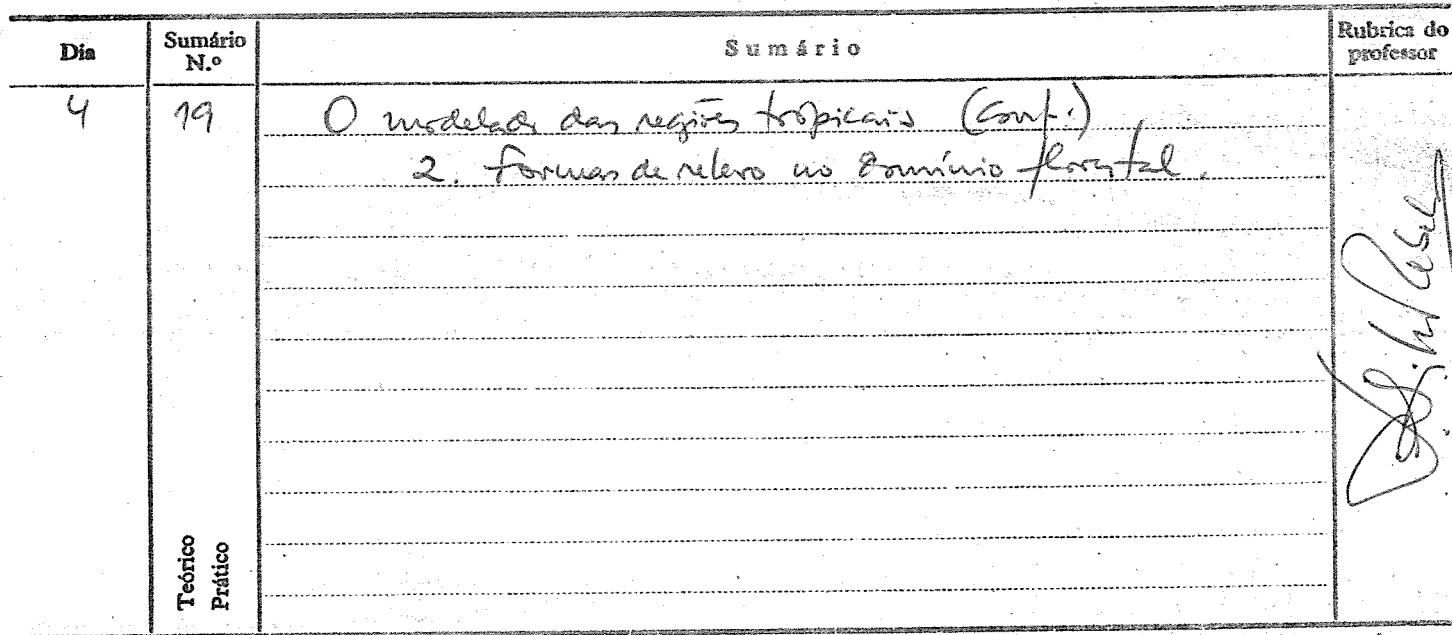 Dia Sumário N.º Sumário Rubrica do professor
4 19 O modelado das regiões tropicais (Cont.)
2. Formas de relevo no domínio florestal.
Teórico
Prático